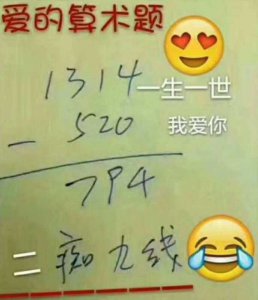 爱的算术题
1314 一生一世
- 520 我爱你
794
二 痴九线